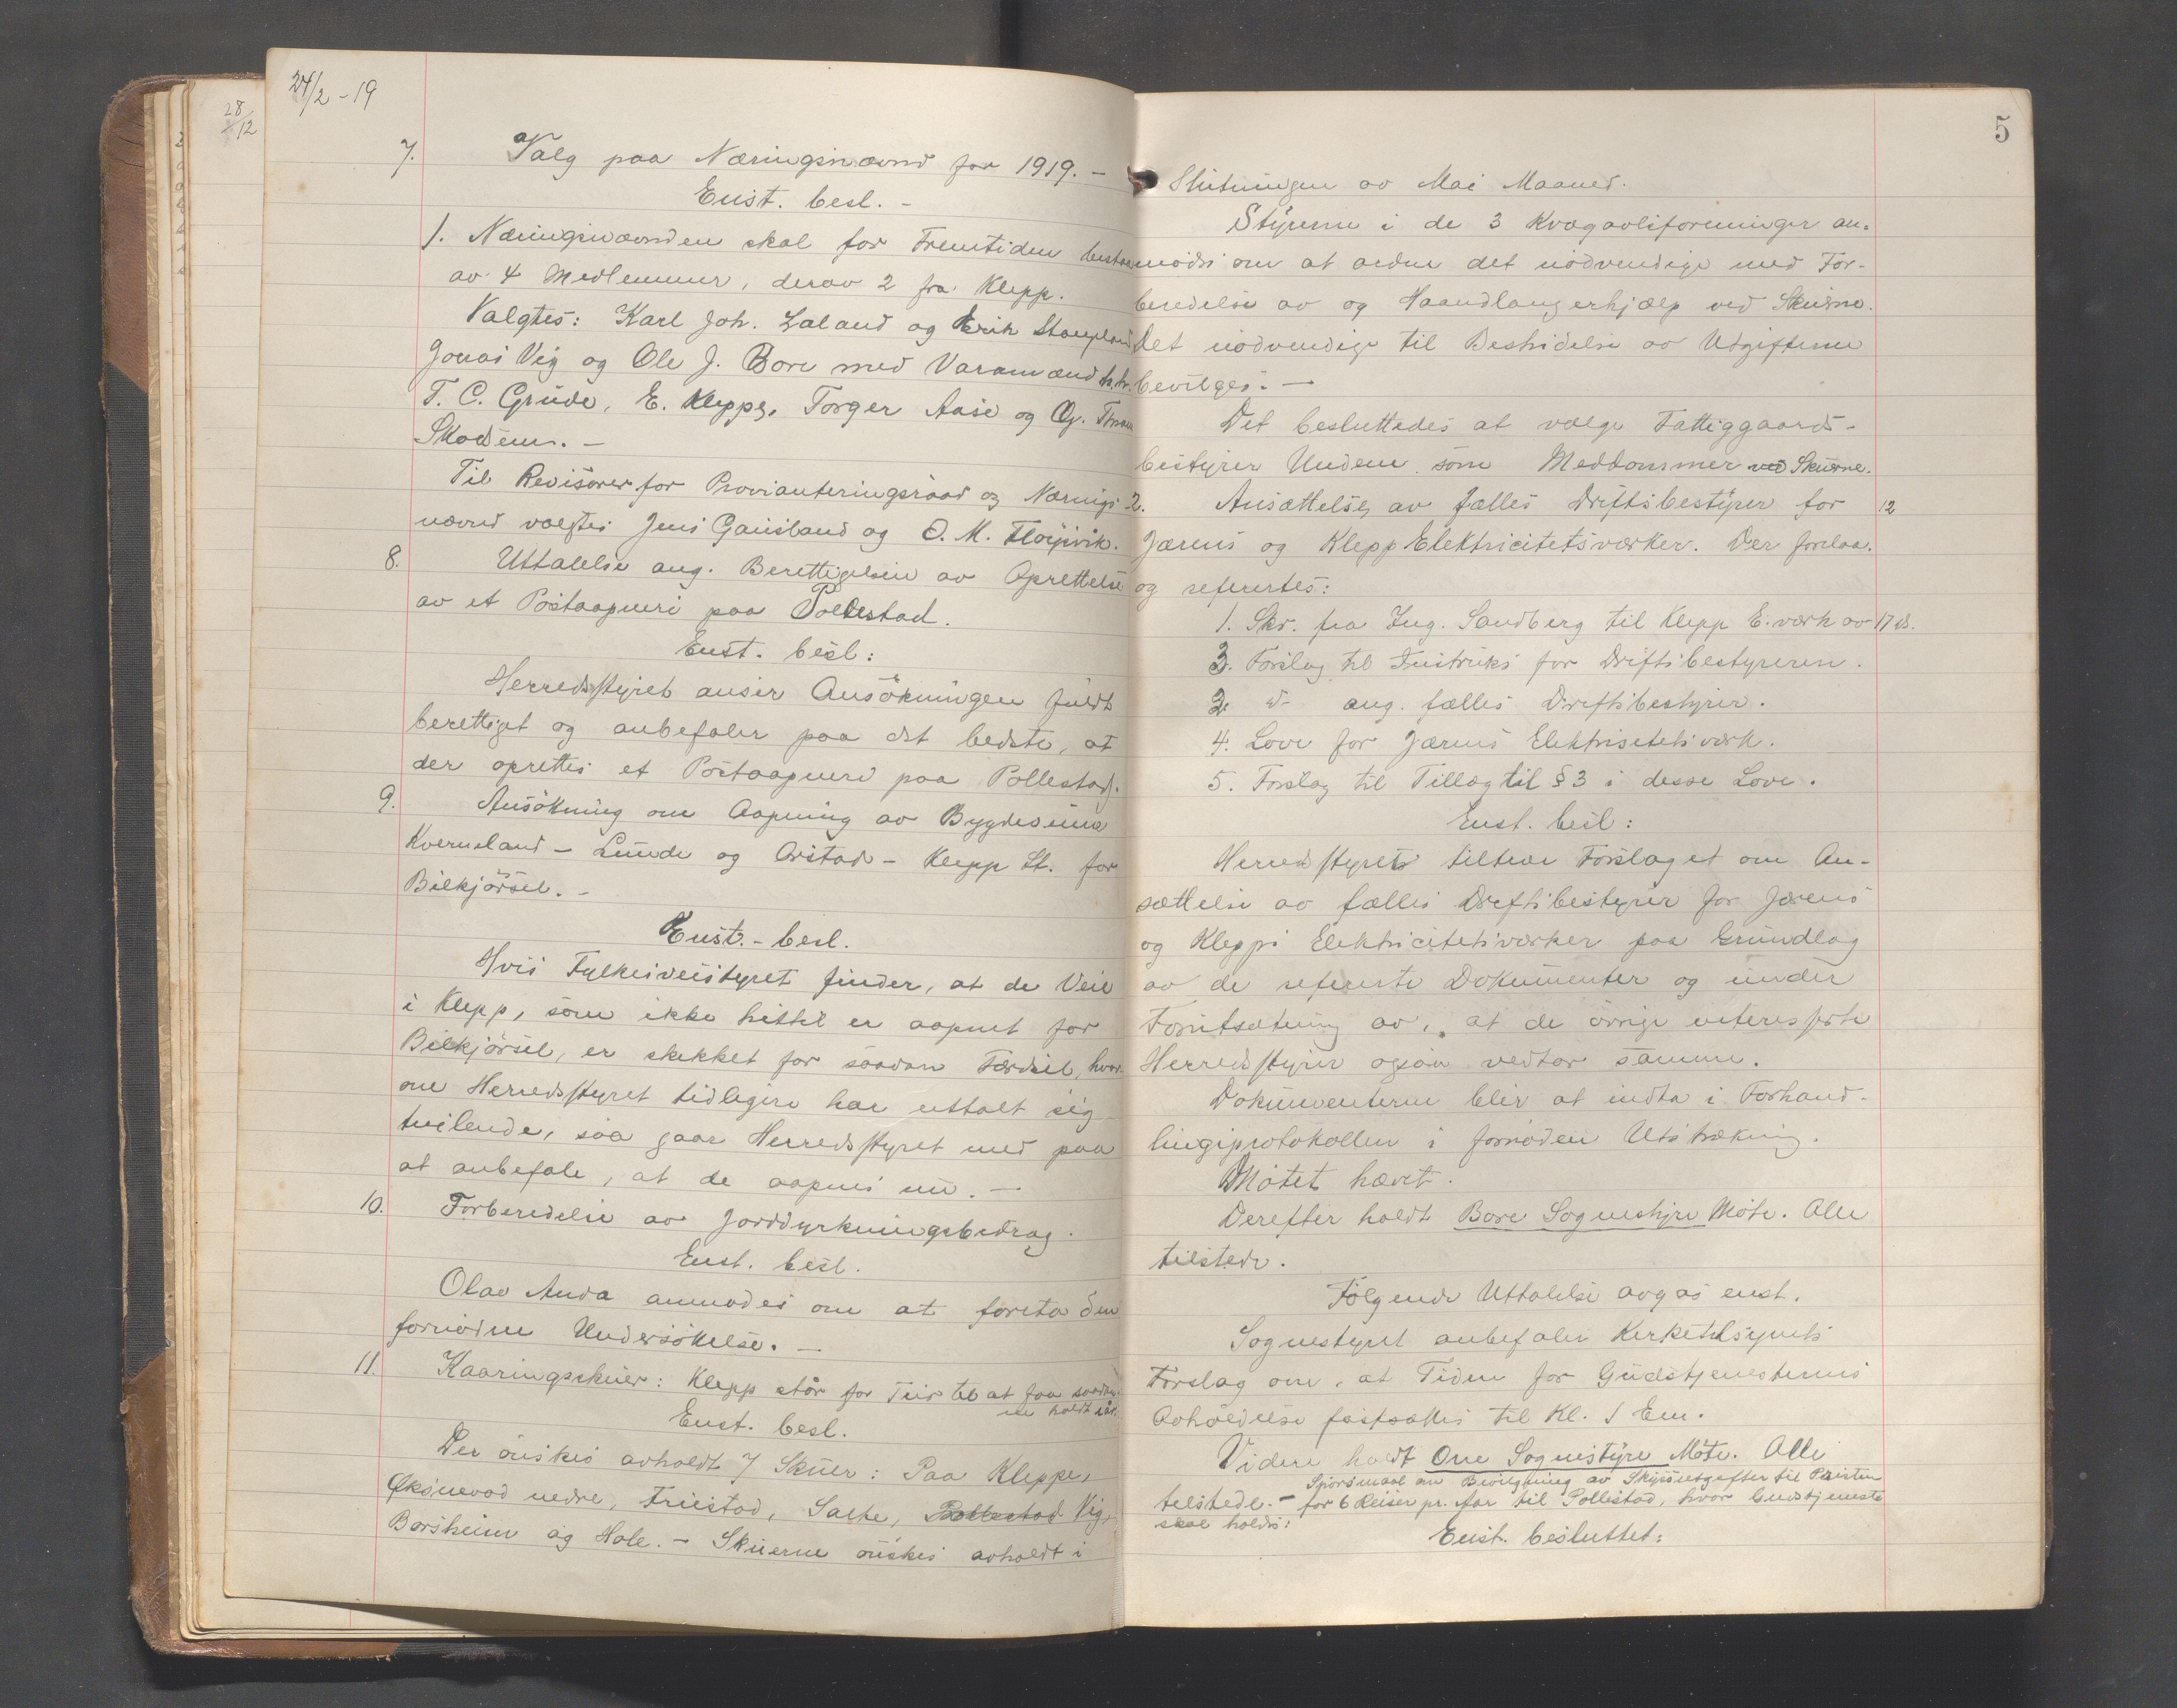 28/12
24/2-19
7. Valg paa Næringsnævnd for 1919. -
Enst. besl. -
1. Næringsnævnden skal for Fremtiden bestaa
av 4 Medlemmer, derav 2 fra Klepp.
Valgtes: Karl Joh. Laland og Erik Stangeland
Jonas Vig og Ole J. Bore med Varamænd h.h.
T. C. Grude, E. Kleppe, Torger Aase og Og. Thom
Skadsem. -
Til Revisorer for Provianteringsraad og Nærings-
nævnd valgtes Jens Gausland og O. M. Fløysvik.
8. Uttalelse ang. Berettigelsen av Oprettelse
av et Postaapneri paa Pollestad.
Enst. besl:
Herredsstyret anser Ansøkningen fuldt
berettiget og anbefaler paa det bedste, at
der oprettes et Postaapneri paa Pollestad.
9. Ansøkning om Aapning av Bygdeveiene
Kverneland - Lunde og Orstad - Klepp St. for
Bilkjørsel. -
Enst. - besl.
Hvis Fylkesveistyret finder, at de Veie
i Klepp, som ikke hittil er aapnet for
Bilkjørsel, er skikket for saadan Færdsel, hvor-
om Herredsstyret tidligere har uttalt sig
tvilende, saa gaar Herredsstyret med paa
at anbefale, at de aapnes nu. -
10. Forberedelse av Jorddyrkningsbidrag.
Enst. besl.
Olav Anda anmodes om at foreta den
fornødne Undersøkelse. -
11. Kaaringsskuer: Klepp står for Tur til at faa saadan
ne holdt iår.
Enst. besl.
Der ønskes avholdt 7 Skuer: Paa Kleppe,
Øksnevad nedre, Friestad, Salte, Pollestad Vig,
Borsheim og Hole. - Skuerne ønskes avholdt i
5
Slutningen av Mai Maaned.
Styrerne i de 3 Kvægavlsforeninger an-
modes om at ordne det nødvendige med For-
beredelse av og Haandlangerhjælp ved Skuerne.
Det nødvendige til Bestridelse av Utgifterne
bevilges. -
Det besluttedes at vælge Fattiggaards-
bestyrer Undem som Meddommer ved Skuerne.
2. Ansættelse av fælles Driftsbestyrer for 12
Jærens og Klepp Elektricitetsværker. Der forelaa
og refertes:
1. Skr. fra Ing. Sandberg til Klepp E.værk av 17 ds.
3. Forslag til Instruks for Driftsbestyreren.
2. do ang. fælles Driftsbestyrer.
4. Love for Jærens Elektrisetetsværk.
5. Forslag til Tillæg til § 3 i desse Love.
Enst. besl:
Herredsstyret tiltræ Forslaget om An-
sættelse av fælles Driftsbestyrer for Jærens
og Klepps Elektricitetsværker paa Grundlag
av de refererte Dokumenter og under
Forutsætning av, at de øvrige interesserte
Herredsstyrer ogsaa vedtar samme.
Dokumenterne blir at indta i Forhand-
lingsprotokollen i fornøden Utstrækning.
Møtet hævet.
Derefter holdt Bore Sognestyre Møte. Alle
tilstede.
Følgende Uttalelse avgas enst.
Sognestyret anbefaler Kirketilsynets
Forslag om, at Tiden for Gudstjenesternes
Avholdelse fastsættes til Kl. 1 Em.
Videre holdt Orre Sognestyre Møte. Alle
tilstede. - Spørsmaal om Bevilgning av Skyssutgifter til Presten
for 6 Reiser pr. Aar til Pollestad, hvor Gudstjeneste
skal holdes:
Enst. besluttet: